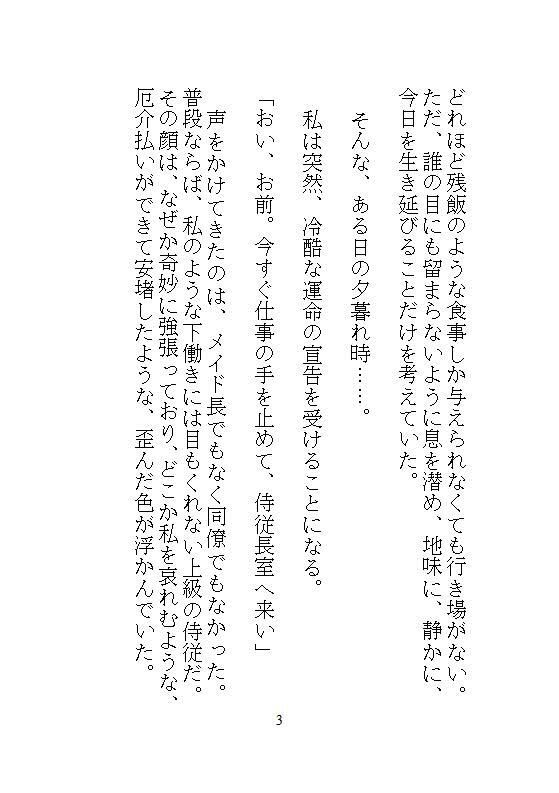 どれほど残飯のような食事しか与えられなくても行き場がない。
ただ、誰の目にも留まらないように息を潜め、地味に、静かに、
今日を生き延びることだけを考えていた。
そんな、ある日の夕暮れ時……。
私は突然、冷酷な運命の宣告を受けることになる。
「おい、お前。今すぐ仕事の手を止めて、侍従長室へ来い」
声をかけてきたのは、メイド長でもなく同僚でもなかった。
普段ならば、私のような下働きには目もくれない上級の侍従だ。
その顔は、なぜか奇妙に強張っており、どこか私を哀れむような、
厄介払いができて安堵したような、歪んだ色が浮かんでいた。
3